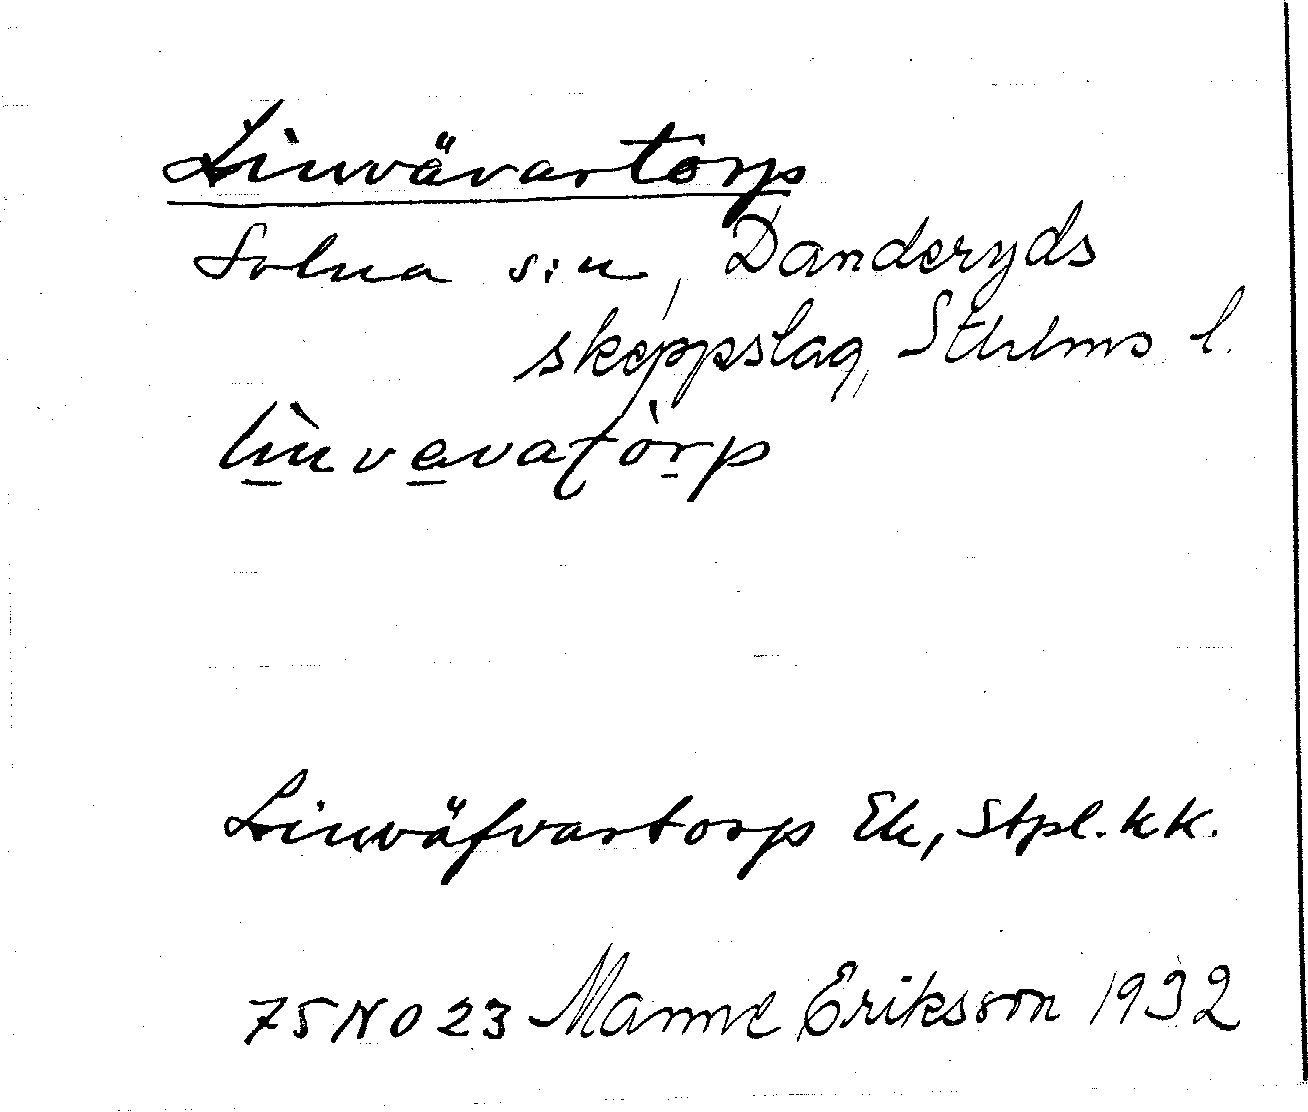 Linvävartorp
Solna s:n, Danderyds
skeppslag, Sthlms l.
lìnvavatòrp
Linväfvartorp Ek, Stpl. kk.
75 NO 23 Manne Eriksson 1932